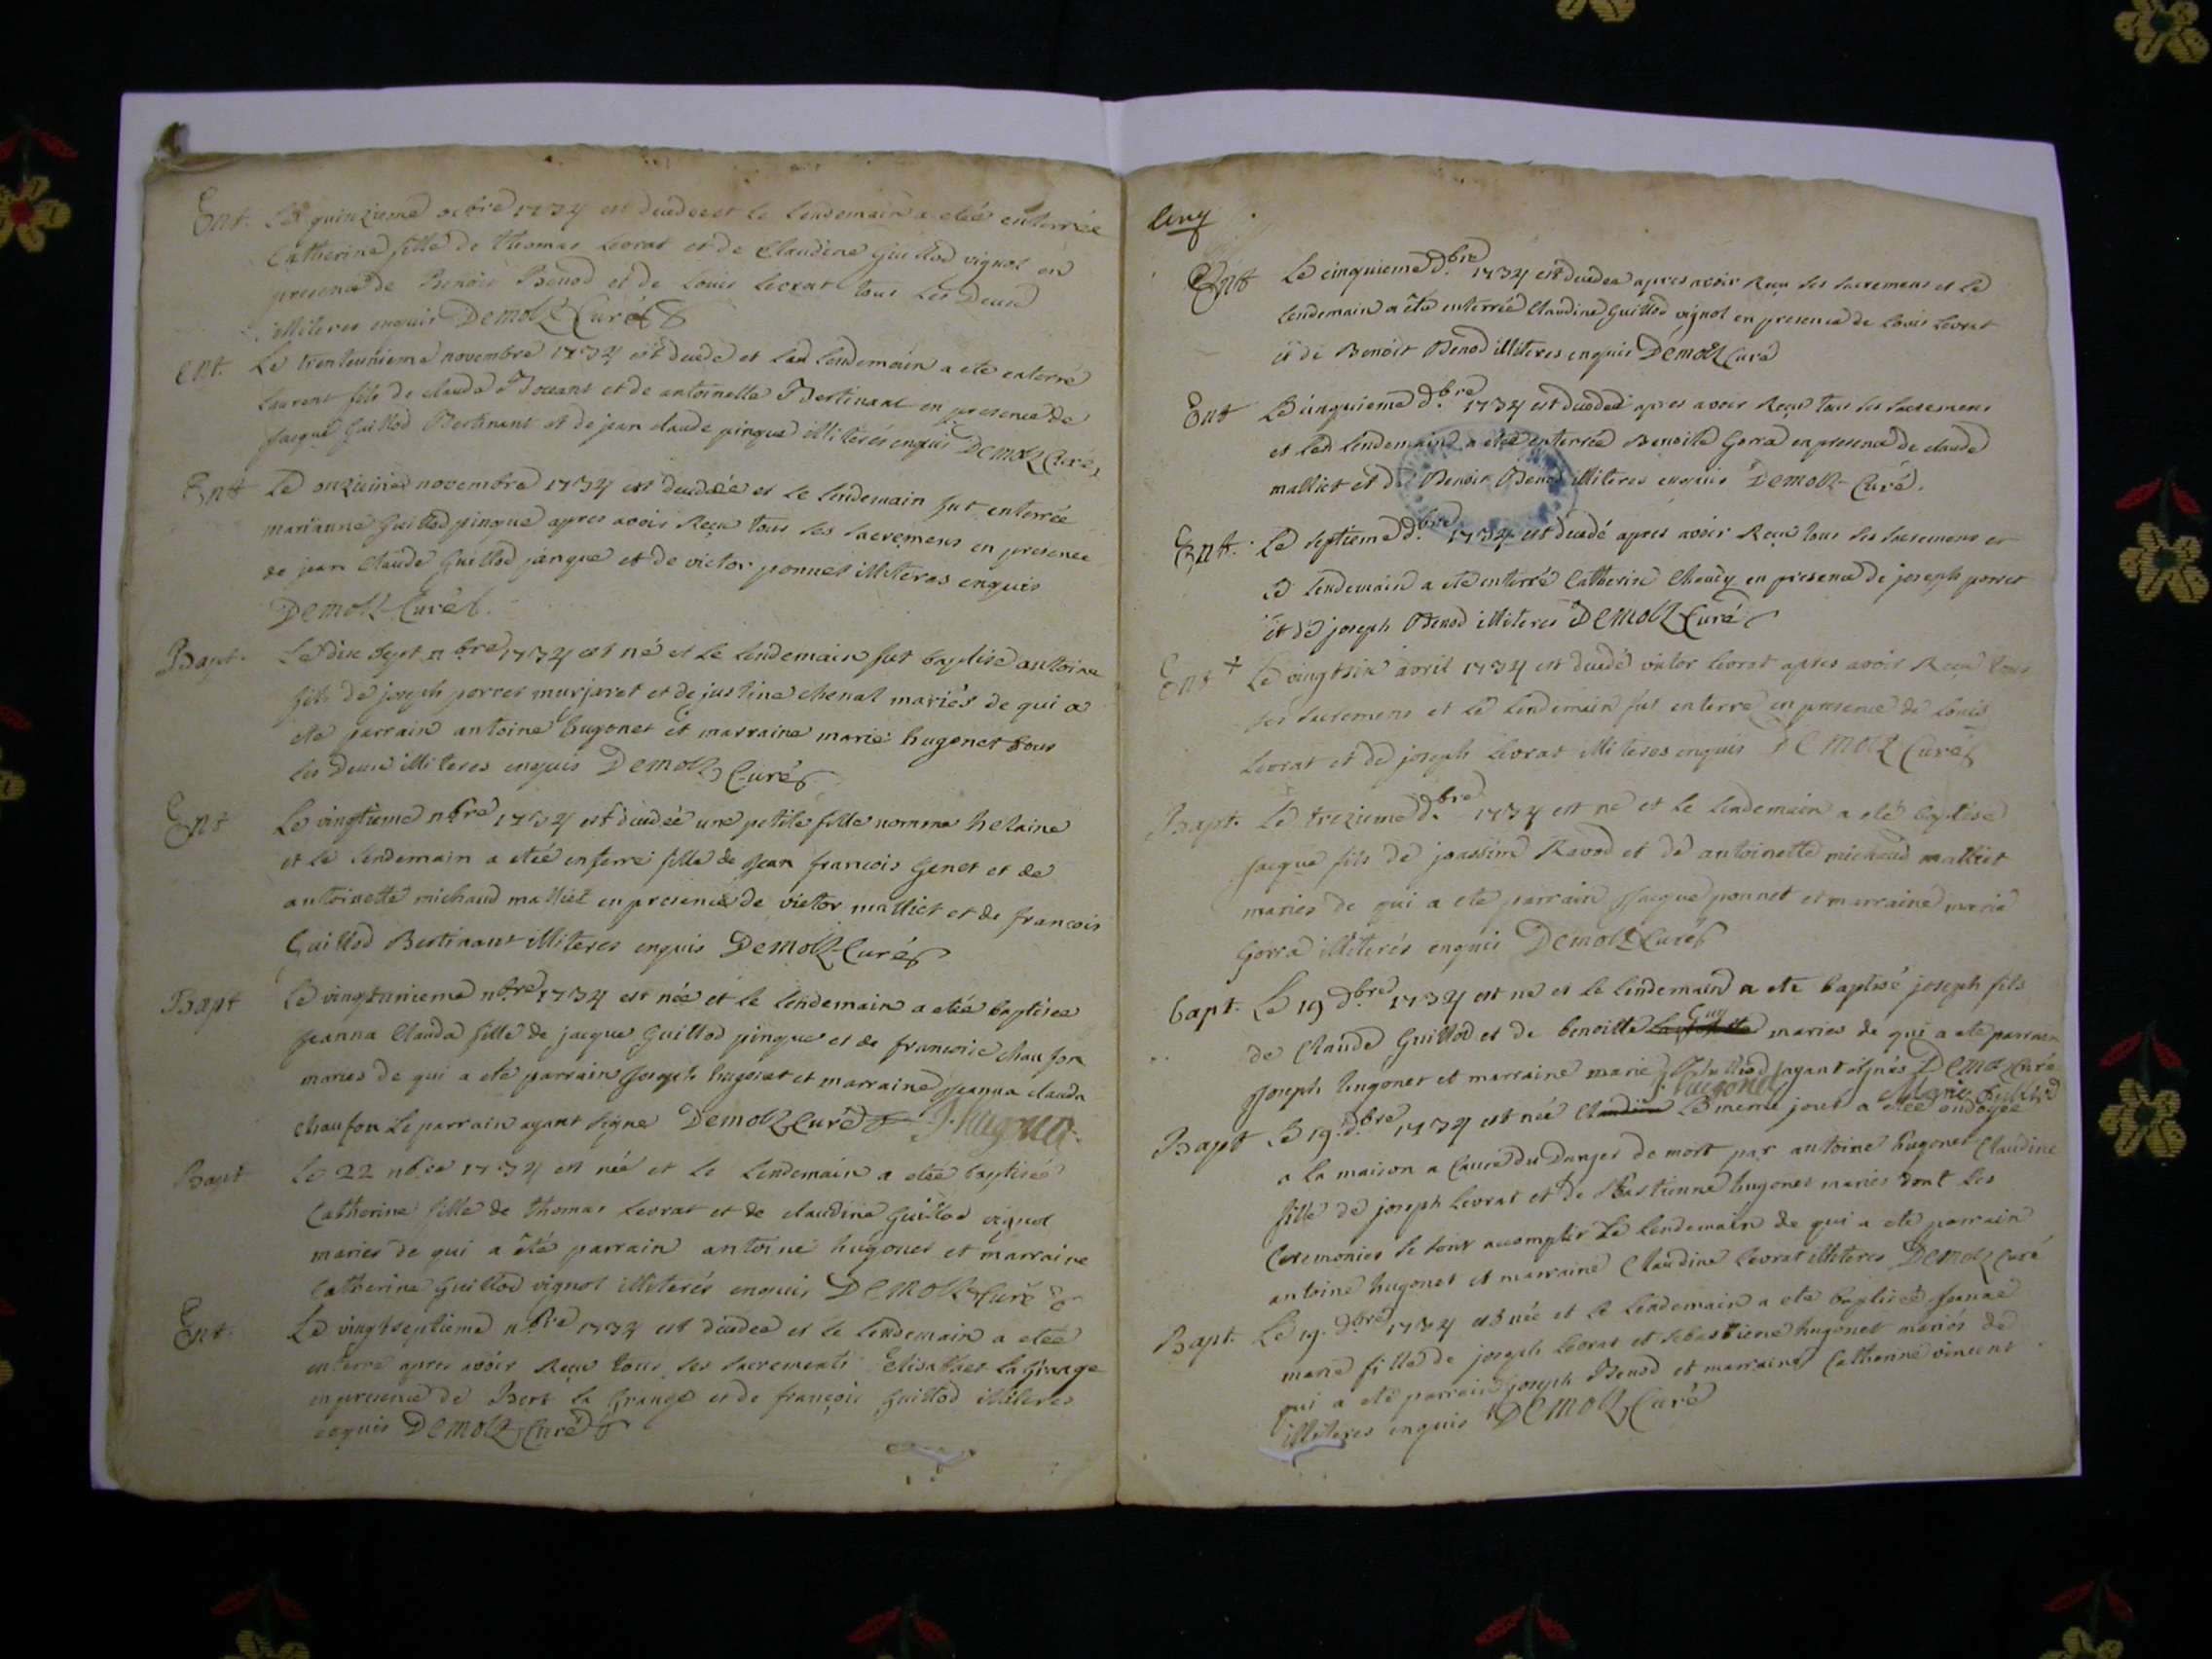 Ent. Le quinzieme octbre 1734 est decedee et le lendemain a eteé enterrée
Catherine fille de thomas Levrat et de Claudine Guillod vignol en
presence de Benois Benod et de Louis Levrat tous les deux
illiteres enquis Demolz Curé
Ent. Le trenteunieme novembre 1734 est decede et le lendemain a ete enterré
Laurent fils de claude et de antoinette Bertinant en presence de
Jacque Guillod Bertinant et de jean claude pinque illiterés enquis Demolz Curé
Ent Le onzieme novembre 1734 est decedée et le lendemain fut enterrée
marianne Guillod pinque apres avoir Reçu tous ses sacremens en presence
de jean Claude Guillod pinque et de victor ponnet illiteres enquis
Demolz Curé
Bapt. Le dix sept nbre 1734 est né et le lendemain fut baptisé antoine
fils de joseph porret murjaret et de justine chenal mariés de qui a
ete parrain antoine hugonet et marraine marie hugonet tous
les deux illiteres enquis Demolz Curé
Ent Le vingtieme nbre 1734 est decedée une petite fille nomme helaine
et le lendemain a eteé enterré fille de Jean francois Genet et de
antoinette michaud malliet en presence de victor malliet et de francois
Guillod Bertinant illiteres enquis Demolz Curé
Bapt Le vingtunieme nbre 1734 est née et le lendemain a eteé baptisee
Jeanna Clauda fille de jacque Guillod pinque et de francoise chaufon
maries de qui a ete parrain Joseph hugonet et marraine Jeanna clauda
chaufon Le parrain ayant signe Demolz Curé J. hugonet
Bapt Le 22 nbre 1734 est née et le lendemain a eteé baptisée
Catherine fille de thomas Levrat et de claudine Guillod vignol
maries de qui a été parrain antoine hugonet et marraine
Catherine Guillod vignol illiterés enquis Demolz Curé
Ent. Le vingtseptieme nbre 1734 est decedee et le lendemain a eteé
enterré apres avoir Reçu tous ses sacrements Elisabhet la Grange
en presence de Bert la Grange et de françois Guillod illiteres
enquis Demolz Curé
Ent Le cinquieme dbre 1734 est decedea apres avoir Reçu ses sacremens et le
lendemain a été enterrée Claudine Guillod vignol en presence de Louis Levrat
et de Benoit Benod illiteres enquis Demolz Curé
Ent Le cinquieme dbre 1734 est decedeé apres avoir Reçu tous ses sacremens
et le lendemain a eteé enterrée Benoite Gorra en presence de claude
malliet et de Benois Benod illiteres enquis Demolz Curé.
Ent. Le septieme dbre 1734 est decedé apres avoir Reçu tous ses sacremens et
le lendemain a ete enterré Catherin en presence de joseph porret
et de joseph Benod illiteres Demolz Curé
Ent + Le vingtsix avril 1734 est decedé victor levrat apres avoir Reçu tous
ses sacremens et le lendemain fut enterré en presence de Louis
Levrat et de joseph Levrat illiteres enquis Demolz Curé
Bapt. Le trezieme dbre 1734 est né et le lendemain a eté baptisé
Jacque fils de joassime Ravod et de antoinette michaud malliet
maries de qui a ete parrain Jacque ponnet et marraine marie
Gorra illiterés enquis Demolz Curé
bapt. Le 19 dbre 1734 est ne et le lendemain a ete baptisé joseph fils
de Claude Guillod et de benoitte Guy maries de qui a ete parrain
Joseph hugonet et marraine marie Guillod ayant signés Demolz Curé
J. hugonet Marie Guillod
Bapt Le 19. dbre 1734 est née Claudine Le meme jour a eteé ondoyée
a la maison a Cause du Danger de mort par antoine hugonet Claudine
fille de joseph Levrat et de Sbastienne hugonet maries dont les
Ceremonies se sont accomplir Le lendemain de qui a ete parrain
antoine hugonet et marraine Claudine Levrat illiteres Demolz Curé
Bapt. Le 19. dbre 1734 est née et le lendemain a ete baptisée Jeanne
marie fille de joseph Levrat et sebastiene hugonet mariés de
qui a eté parrain joseph Benod et marraine Catherine vincent
illiteres enquis Demolz Curé